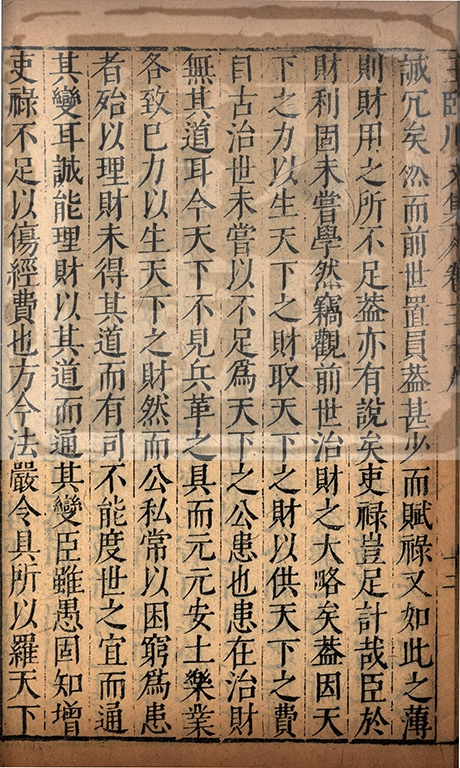 王臨川文集 卷三十九 十二
誠冗矣然而前世置員葢甚少而賦祿又如此之薄
則財用之所不足葢亦有說矣吏祿豈足計哉臣於
財利固未嘗學然竊觀前世治財之大略矣葢因天
下之力以生天下之財取天下之財以供天下之費
自古治世未嘗以不足爲天下之公患也患在治財
無其道耳今天下不見兵革之具而元元安土樂業
各致已力以生天下之財然而公私常以困窮爲患
者殆以理財未得其道而有司不能度世之宜而通
其變耳誠能理財以其道而通其變臣雖愚固知增
吏祿不足以傷經費也方今法嚴令具所以羅天下